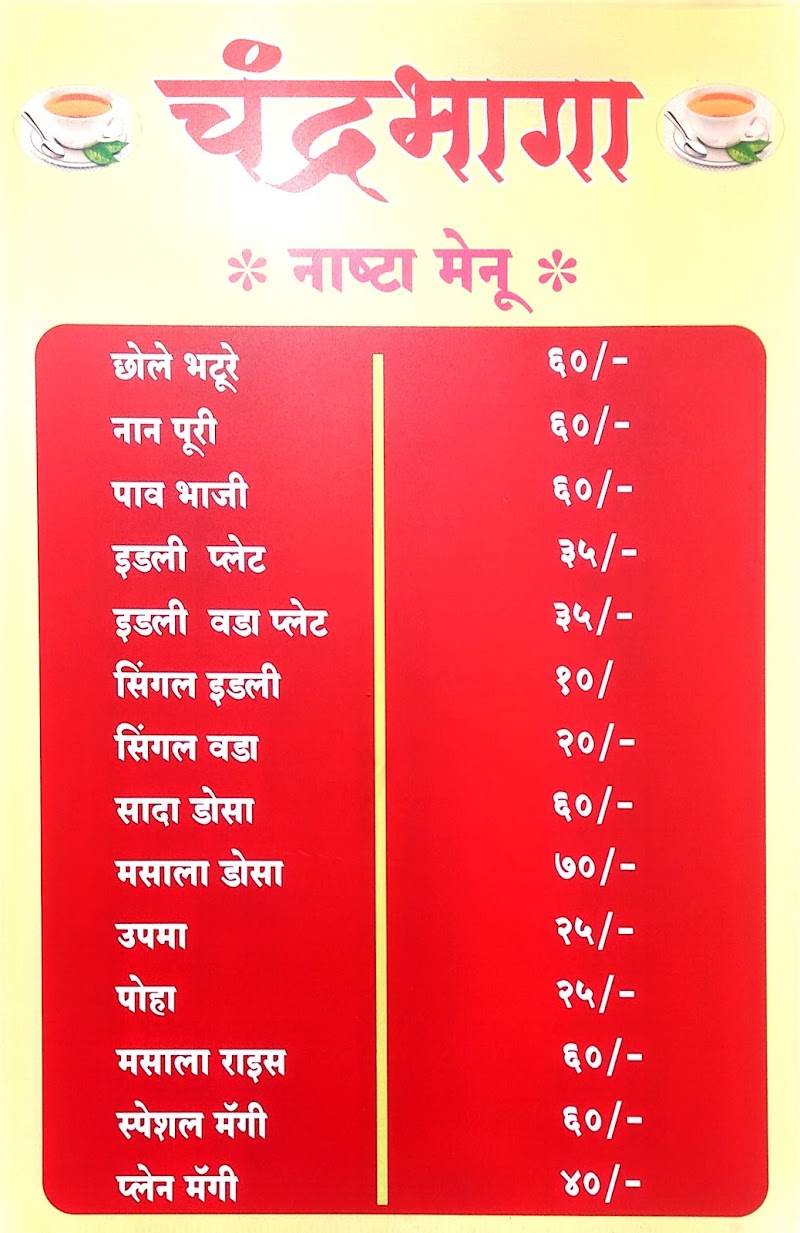 चंद्रभागा
* नाष्टा मेनू *
छोले भटूरे ६०/-
नान पूरी ६०/-
पाव भाजी ६०/-
इडली प्लेट ३५/-
इडली वडा प्लेट ३५/-
सिंगल इडली १०/
सिंगल वडा २०/-
सादा डोसा ६०/-
मसाला डोसा ७०/-
उपमा २५/-
पोहा २५/-
मसाला राइस ६०/-
स्पेशल मॅगी ६०/-
प्लेन मॅगी ४०/-